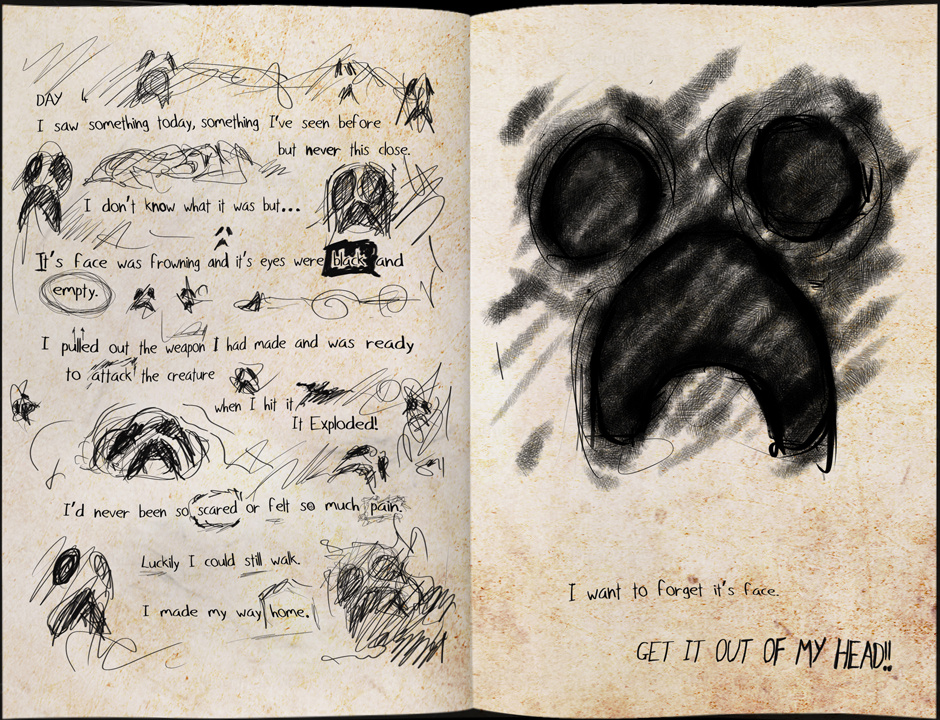 DAY 4
I saw something today, something I've seen before
but never this close.
I don't know what it was but...
It's face was frowning and it's eyes were black and
empty.
I pulled out the weapon I had made and was ready
to attack the creature
when I hit it
It Exploded!
I'd never been so scared or felt so much pain.
Luckily I could still walk.
I made my way home.
I want to forget it's face.
GET IT OUT OF MY HEAD!!